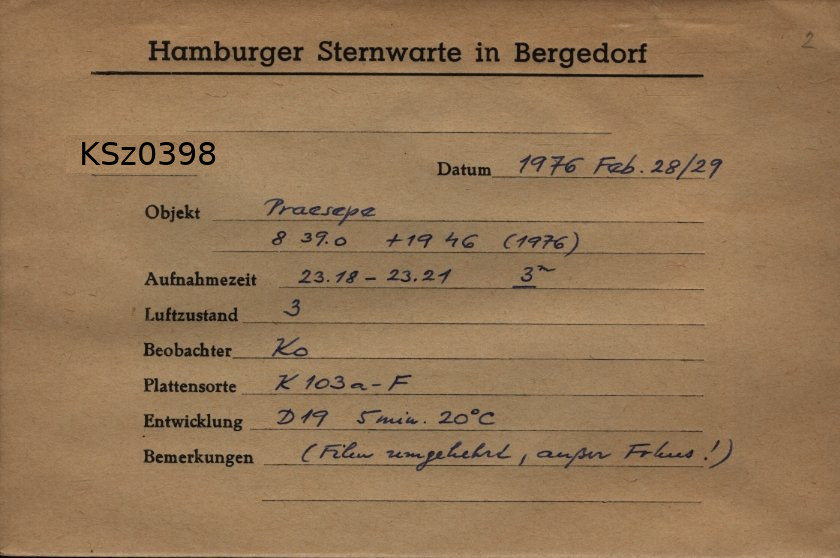 2
Hamburger Sternwarte in Bergedorf
KSz0398
Datum 1976 Feb. 28/29
Objekt Praesepe
8 39.0 +19 46 (1976)
Aufnahmezeit 23.18 – 23.21 3m
Luftzustand 3
Beobachter Ko
Plattensorte K 103a-F
Entwicklung D19 5 min. 20°C
Bemerkungen (Film umgekehrt, außer Fokus!)